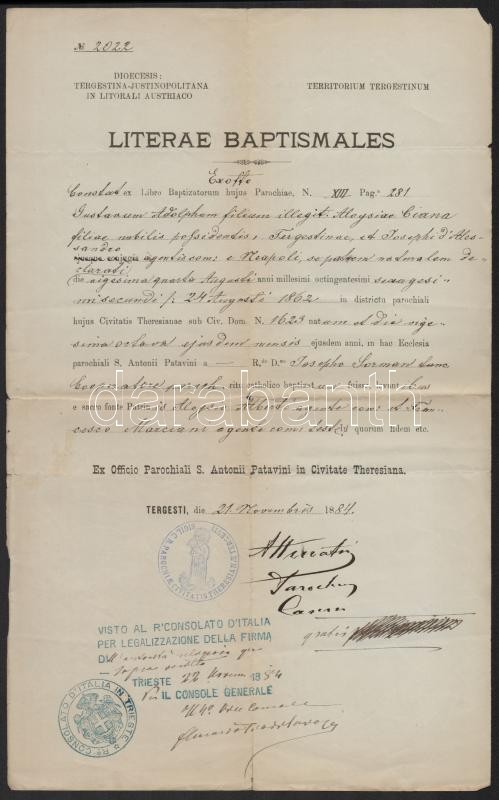 № 2022
DIOECESIS:
TERGESTINA-JUSTINOPOLITANA
IN LITORALI AUSTRIACO
TERRITORIUM TERGESTINUM
LITERAE BAPTISMALES
Ex offo
Constat ex Libro Baptizatorum hujus Parochiae, N. XIII Pag.ª 281
Gustavum Adolphum filium illegit. Aloysiae Ciana
filiae nobilis possidentis, Tergestinae, et Josephi d'Ales-
sandro
agentis com: e Neapoli, se patrem naturalem de-
clarati
die vigesima quarta Augusti anni millesimi octingentesimi sexagesi-
mi secundi /: 24 Augusti 1862 in districtu parochiali
hujus Civitatis Theresianae sub Civ. Dom. N. 1623 natum et die vige-
sima octava ejusdem mensis ejusdem anni, in hac Ecclesia
parochiali S. Antonii Patavini a — R.do D.no Josepho Sorman tunc
Cooperatore paroch. ritu catholico baptizatum fuisse,
e sacro fonte Patrinis Aloysio com: et Fran-
cesco Marciani agente com: quorum fidem etc.
Ex Officio Parochiali S. Antonii Patavini in Civitate Theresiana.
TERGESTI, die 21 Novembris 1884.
Parochus
gratis
VISTO AL Rº CONSOLATO D'ITALIA
PER LEGALIZZAZIONE DELLA FIRMA
TRIESTE 22 1884
IL CONSOLE GENERALE
Rº CONSOLATO D'ITALIA IN TRIESTE
darabanth